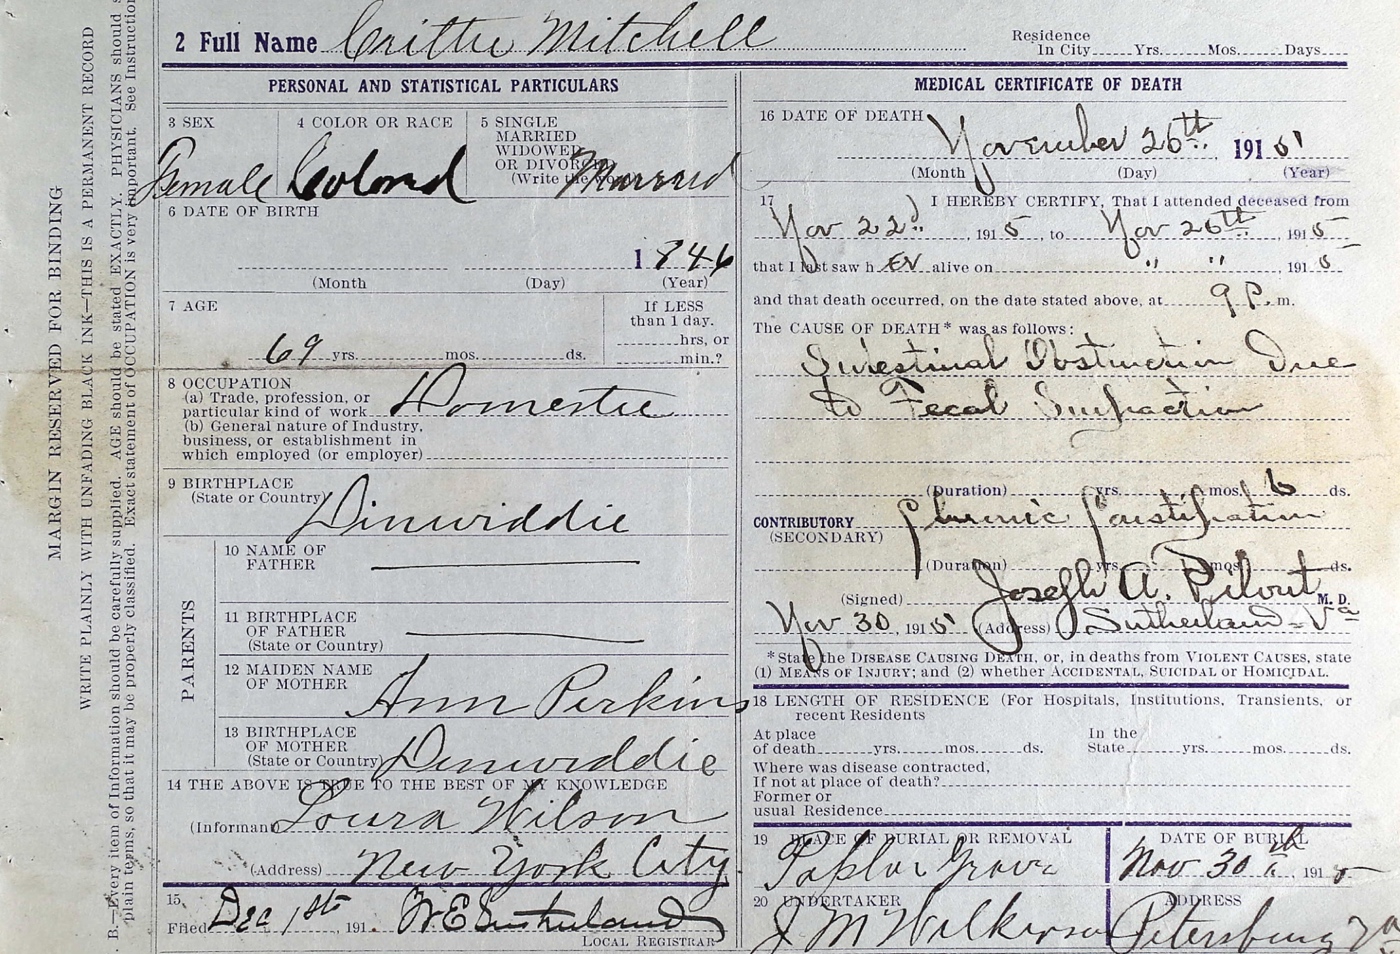 MARGIN RESERVED FOR BINDING
WRITE PLAINLY WITH UNFADING BLACK INK—THIS IS A PERMANENT RECORD
B.—Every item of Information should be carefully supplied. AGE should be stated EXACTLY. PHYSICIANS should
plain terms, so that it may be properly classified. Exact statement of OCCUPATION is very important. See Instruction
2 Full Name Crittie Mitchell
Residence
In City Yrs. Mos. Days
PERSONAL AND STATISTICAL PARTICULARS
3 SEX
Female
4 COLOR OR RACE
Colored
5 SINGLE
MARRIED
WIDOWED
OR DIVORCED
(Write the word)
Married
6 DATE OF BIRTH
1846
(Month (Day) (Year)
7 AGE
69 yrs. mos. ds.
If LESS
than 1 day.
hrs, or
min.?
8 OCCUPATION
(a) Trade, profession, or
particular kind of work Domestic
(b) General nature of Industry,
business, or establishment in
which employed (or employer)
9 BIRTHPLACE
(State or Country) Dinwiddie
PARENTS
10 NAME OF
FATHER
11 BIRTHPLACE
OF FATHER
(State or Country)
12 MAIDEN NAME
OF MOTHER Ann Perkins
13 BIRTHPLACE
OF MOTHER
(State or Country) Dinwiddie
14 THE ABOVE IS TRUE TO THE BEST OF MY KNOWLEDGE
(Informant Loura Wilson
(Address) New York City
15
Filed Dec 1st, 191 W.E. Sutherland
LOCAL REGISTRAR
MEDICAL CERTIFICATE OF DEATH
16 DATE OF DEATH
November 26th 1915
(Month (Day) (Year)
17 I HEREBY CERTIFY, That I attended deceased from
Nov 22d, 1915, to Nov 26th, 1915
that I last saw h er alive on " " 1915
and that death occurred, on the date stated above, at 9 P. m.
The CAUSE OF DEATH* was as follows:
Intestinal Obstruction Due
to Fecal Impaction
(Duration) yrs. mos. 6 ds.
CONTRIBUTORY Chronic Constipation
(SECONDARY)
(Duration) yrs. mos. ds.
(Signed) Joseph A. M. D.
Nov 30, 1915 (Address) Sutherland - Va
*State the DISEASE CAUSING DEATH, or, in deaths from VIOLENT CAUSES, state
(1) MEANS OF INJURY; and (2) whether ACCIDENTAL, SUICIDAL or HOMICIDAL.
18 LENGTH OF RESIDENCE (For Hospitals, Institutions, Transients, or
recent Residents
At place
of death yrs. mos. ds.
In the
State yrs. mos. ds.
Where was disease contracted,
If not at place of death?
Former or
usual Residence
19 PLACE OF BURIAL OR REMOVAL
Poplar Grove
DATE OF BURIAL
Nov 30th, 1915
20 UNDERTAKER
J M Wilkerson
ADDRESS
Petersburg Va